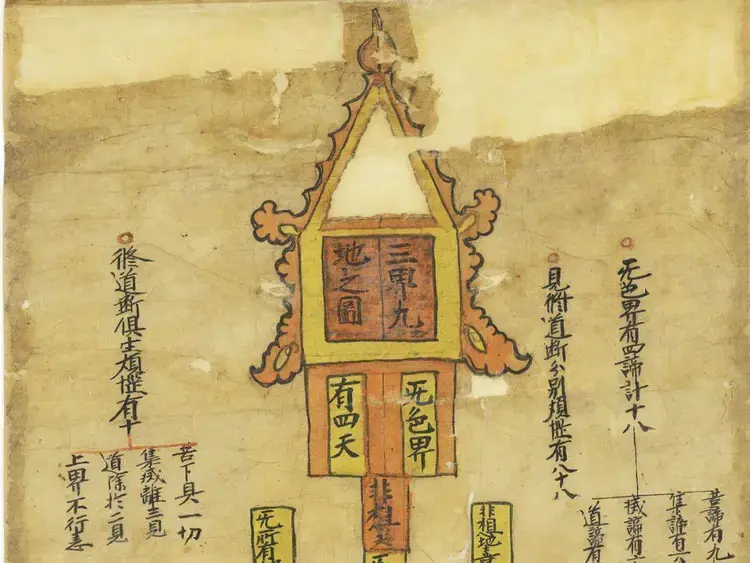 三界九
地之圖
无色界
有四天
非想天
无色界有四諦計十八
苦諦有九
集諦有六
滅諦有
道諦有
見修道断分别煩惱有八十八
修道断俱生煩惱有十
苦下具一切
集滅離三見
道除於二見
上界不行恚
非想地
无所有